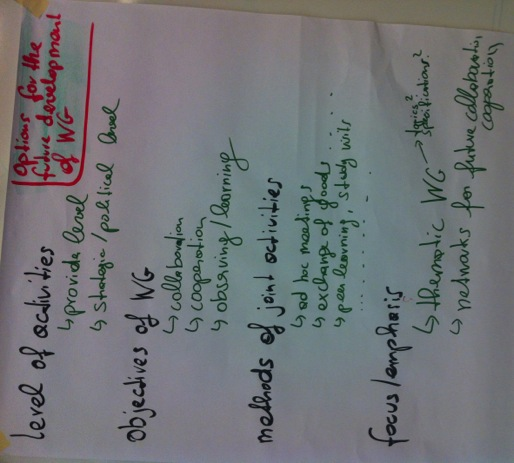 Options for the
future development
of WG
level of activities
↳ provide level
↳ strategic/political level
objectives of WG
↳ collaboration
↳ cooperation
↳ observing/learning
methods of joint activities
↳ ad hoc meetings
↳ exchange of goods
↳ peer learning, study visits ......
...........
focus/emphasis
↳ thematic WG → topics?
specifications?
↳ networks for future collaboration,
cooperation,